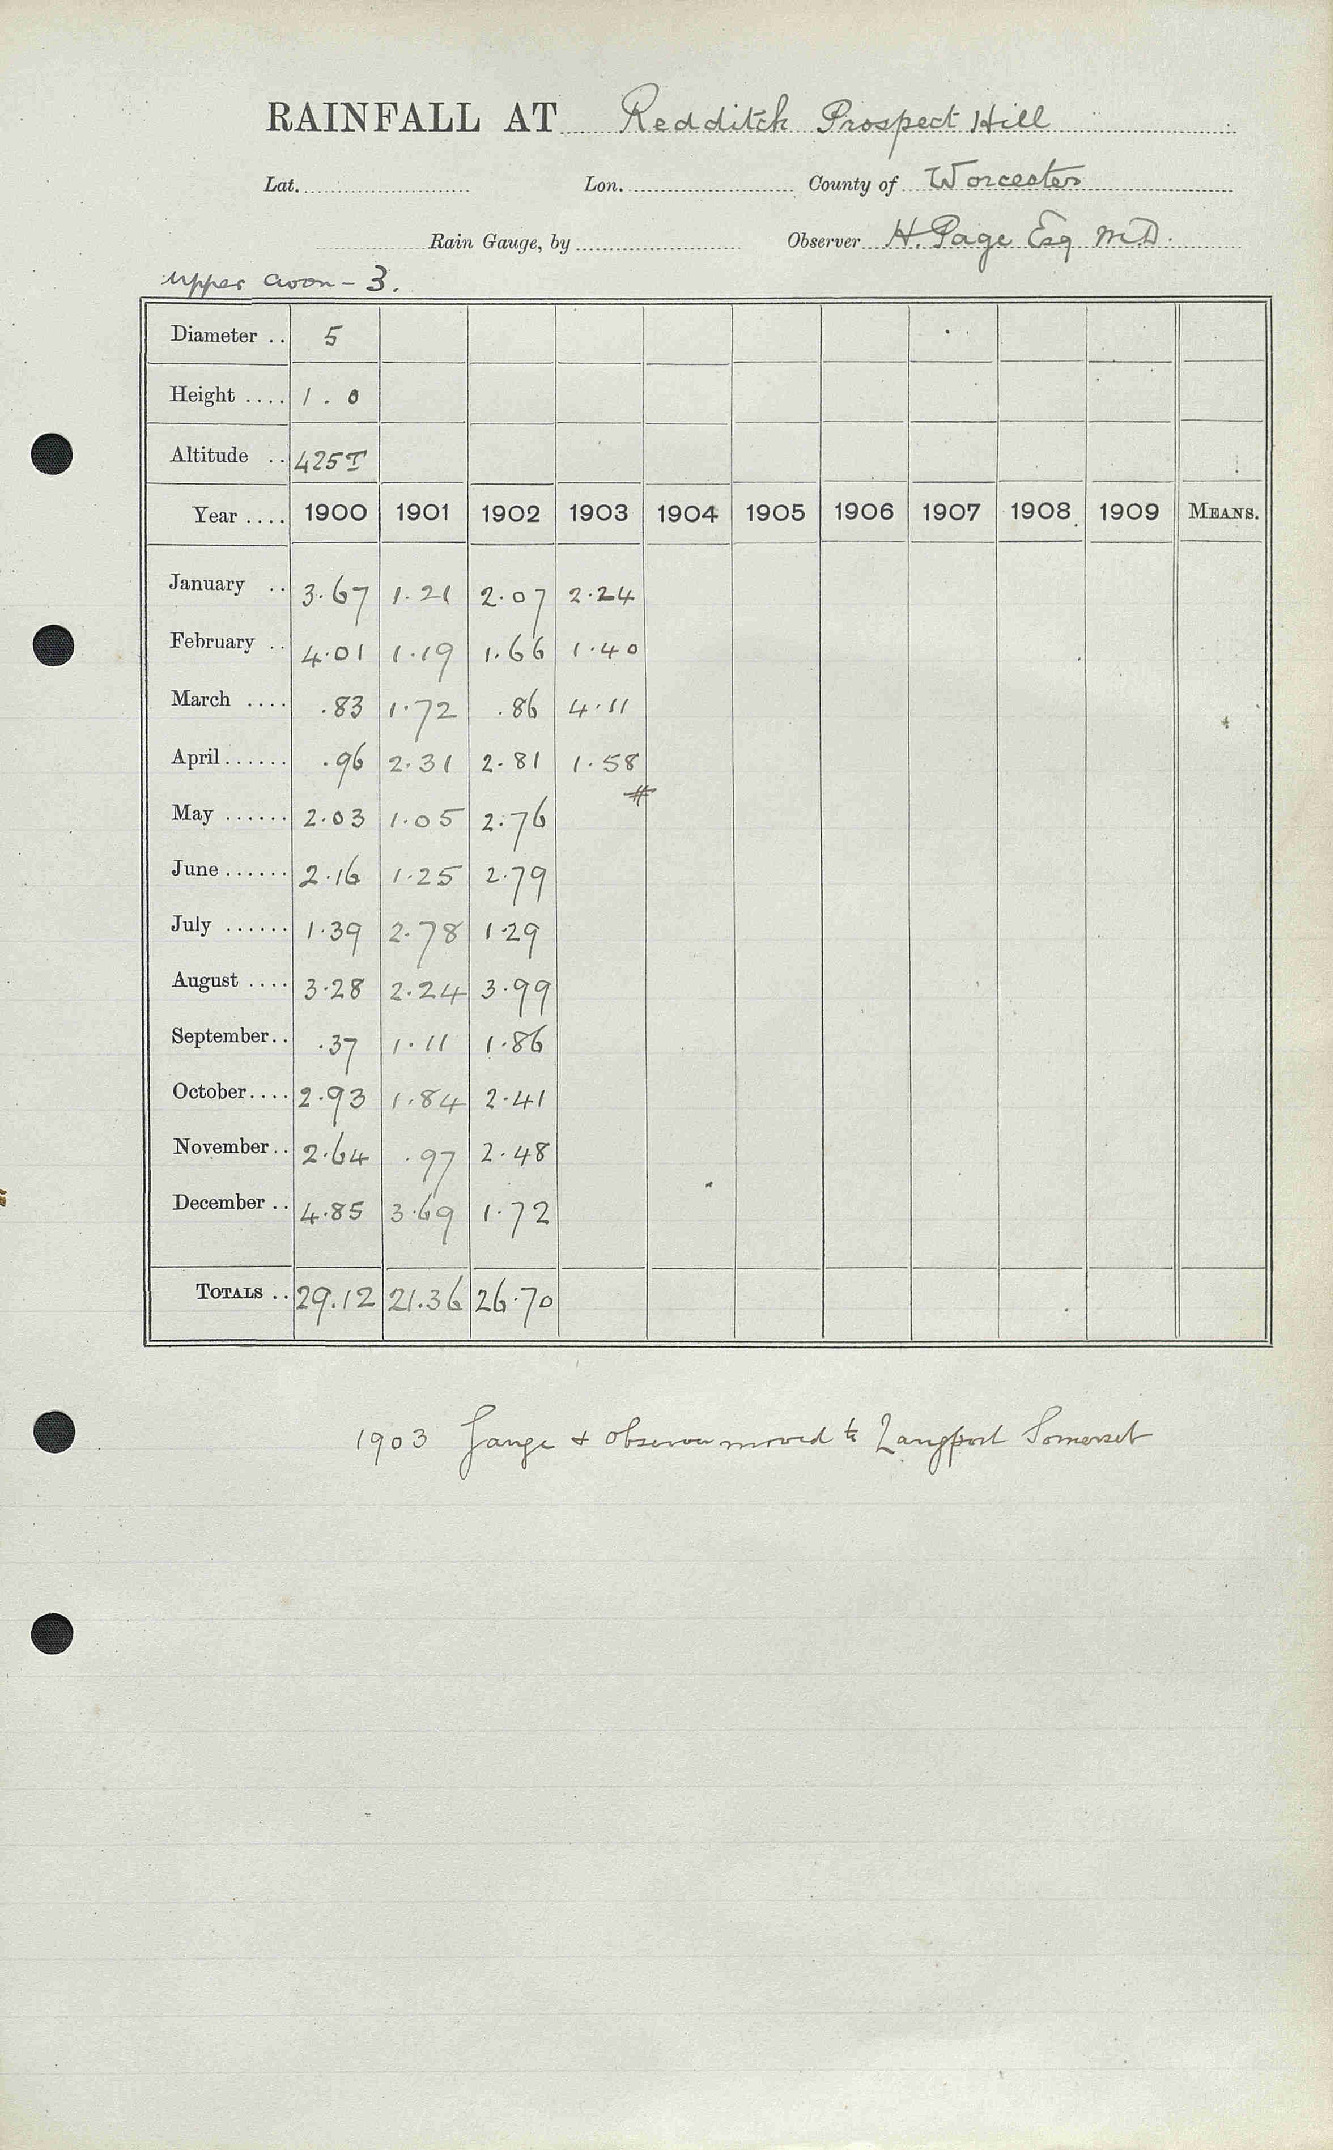 RAINFALL AT Redditch Prospect Hill
Lat. Lon. County of Worcester
Rain Gauge, by Observer H. Page Esq M.D.
Upper Avon - 3.
Diameter .. 5
Height .... 1.0
Altitude .. 425T
Year .... 1900 1901 1902 1903 1904 1905 1906 1907 1908 1909 MEANS.
January .. 3.67 1.21 2.07 2.24
February .. 4.01 1.19 1.66 1.40
March .... .83 1.72 .86 4.11
April ...... .96 2.31 2.81 1.58
#
May ...... 2.03 1.05 2.76
June ...... 2.16 1.25 2.79
July ...... 1.39 2.78 1.29
August .... 3.28 2.24 3.99
September.. .37 1.11 1.86
October.... 2.93 1.84 2.41
November.. 2.64 .97 2.48
December .. 4.85 3.69 1.72
TOTALS .. 29.12 21.36 26.70
1903 Gauge & observer moved to Langport Somerset